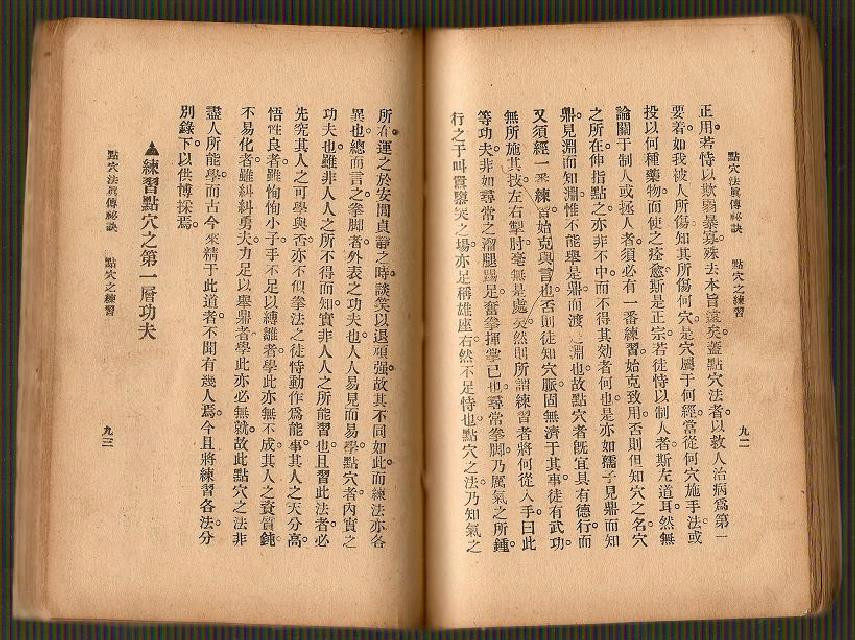 點穴法眞傳祕訣　點穴之練習
九二
正用。若恃以欺弱暴寡。殊去本旨遠矣。蓋點穴法者。以救人治病爲第一
要着。如我被人所傷。知其所傷何穴。是穴屬于何經。當從何穴施手法。或
投以何種藥物。而使之痊愈。斯是正宗。若徒恃以制人者。斯左道耳。然無
論關于制人或拯人者。須必有一番練習。始克致用。否則但知穴之名。穴
之所在。伸指點之。亦非不中。而不得其効者何也。是亦如孺子見鼎而知
鼎。見淵而知淵。惟不能舉是鼎而渡是淵也。故點穴者。旣宜具有德行。而
又須經一番練習。始克與言也。否則徒知穴脈。固無濟于其事。徒有武功。
無所施其技。左右掣肘。毫無是處矣。然則所謂練習者。將何從入手。曰此
等功夫。非如尋常之溜腿踢足。奮拳揮掌已也。尋常拳脚。乃厲氣之所鍾。
行之于叫囂墮突之場。亦足稱雄座右。然不足恃也。點穴之法。乃知氣之
所在。運之於安閒貞靜之時。談笑以退頑强。故其不同如此。而練法亦各
異也。總而言之。拳脚者。外表之功夫也。人人易見而易學。點穴者。內實之
功夫也。雖非人人之所不得而知。實非人人之所能習也。且習此法者。必
先究其人之可學與否。亦不似拳法之徒恃動作爲能事。其人之天分高。
悟性良者。雖恂恂小子。手不足以縛雛者。學此亦無不成。其人之資質鈍。
不易化者。雖糾糾勇夫。力足以舉鼎者。學此亦必無就。故此點穴之法。非
盡人所能學。而古今來精于此道者。不聞有幾人焉。今且將練習各法。分
別錄下。以供博採焉。
▲練習點穴之第一層功夫
點穴法眞傳祕訣　點穴之練習
九三